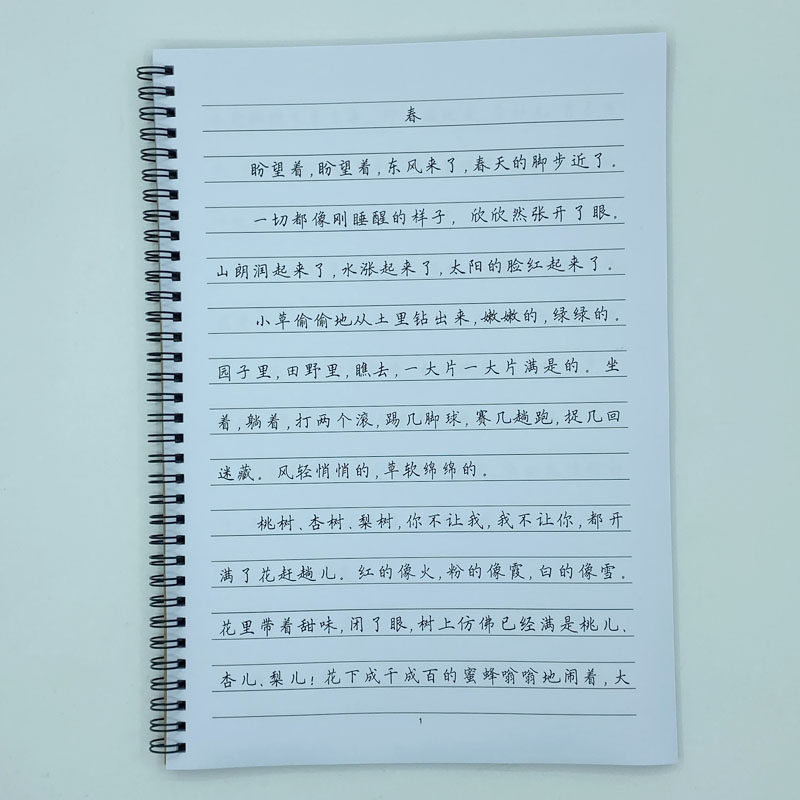 春
盼望着,盼望着,东风来了,春天的脚步近了。
一切都像刚睡醒的样子,欣欣然张开了眼。
山朗润起来了,水涨起来了,太阳的脸红起来了。
小草偷偷地从土里钻出来,嫩嫩的,绿绿的。
园子里,田野里,瞧去,一大片一大片满是的。坐
着,躺着,打两个滚,踢几脚球,赛几趟跑,捉几回
迷藏。风轻悄悄的,草软绵绵的。
桃树、杏树、梨树,你不让我,我不让你,都开
满了花赶趟儿。红的像火,粉的像霞,白的像雪。
花里带着甜味,闭了眼,树上仿佛已经满是桃儿、
杏儿、梨儿!花下成千成百的蜜蜂嗡嗡地闹着,大
1